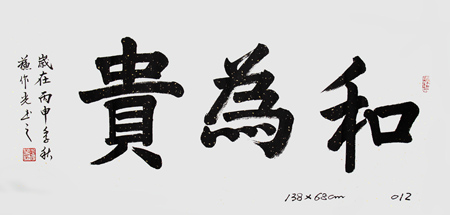 和為貴
歲在丙申季秋
作光书之
138×68cm
012